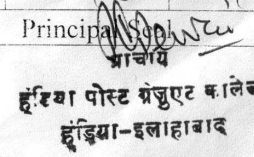 Principal Seal
प्राचार्य
हंडिया पोस्ट ग्रेजुएट कालेज
हंडिया-इलाहाबाद